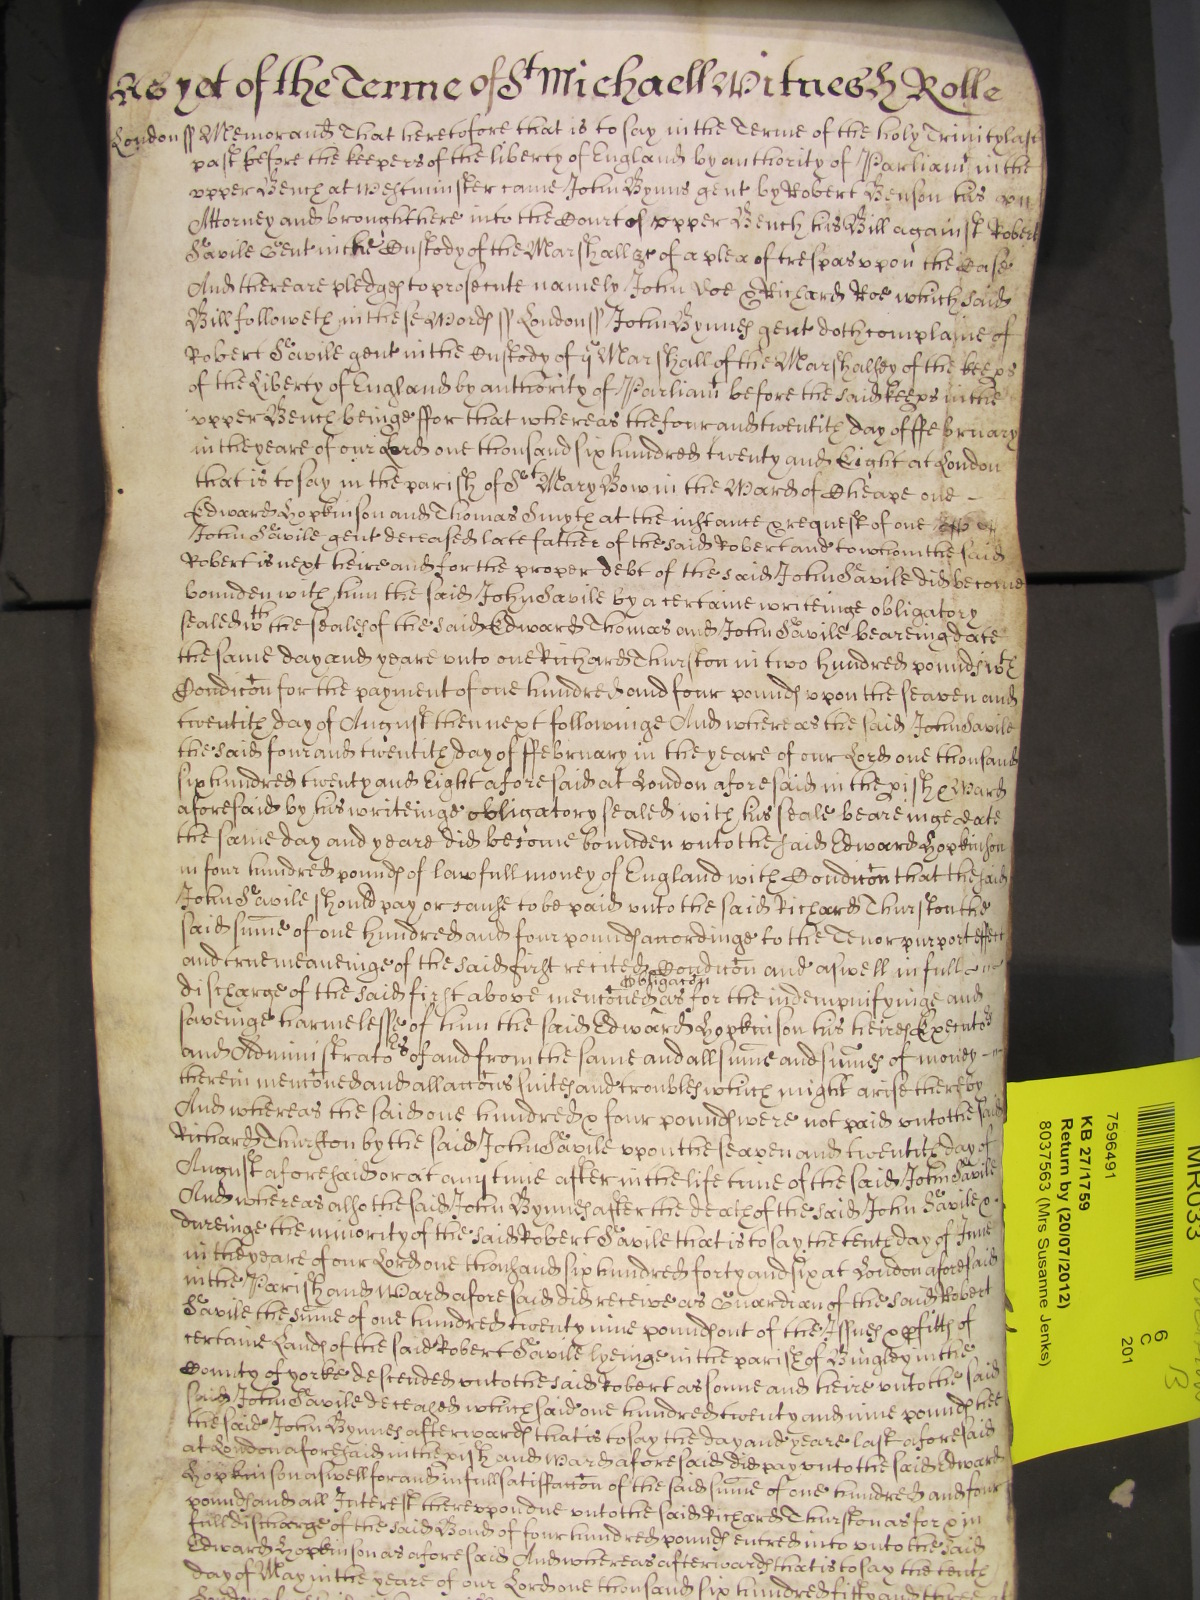 As yet of the Terme of St Michaell Witnesh Rolle
London ss Memorand That heretofore that is to say in the Terme of the holy Trinity last
past before the keepers of the liberty of England by authority of Parliamt in the
upper Bench at Westminster came John Bynns gent by Robert Benson his
Attorney and brought here into the Court of upper Bench his Bill against Robert
Savile Gent in the Custody of the Marshall &c of a plea of trespas upon the Case
And there are pledges to prosecute namely John Doe & Richard Roe which said
Bill followeth in these Words ss London ss John Bynnes gent doth complaine of
Robert Savile gent in the Custody of ye Marshall of the Marshalsey of the keeps
of the Liberty of England by authority of Parliamt before the said keeps in the
upper Bench beinge ffor that whereas the four and twentith day of ffebruary
in the yeare of our Lord one thousand six hundred twenty and Eight at London
that is to say in the parish of St Mary Bow in the Ward of Cheape one
Edward Hopkinson and Thomas Smyth at the instance & request of one
John Savile gent deceased late father of the said Robert and to whom the said
Robert is next heire and for the proper debt of the said John Savile did become
bounden with him the said John Savile by a certaine writeinge obligatory
sealed wth the seales of the said Edward Thomas and John Savile beareing date
the same day and yeare unto one Richard Thurston in two hundred pounds wth
Condicon for the payment of one hundred and four pounds upon the seaven and
twentith day of August then next followinge And whereas the said John Savile
the said four and twentith day of ffebruary in the yeare of our Lord one thousand
six hundred twenty and Eight aforesaid at London aforesaid in the pish & Ward
aforesaid by his writeinge obligatory sealed with his seale beareinge date
the same day and yeare did become bounden unto the said Edward Hopkinson
in four hundred pounds of lawfull money of England with Condicon that the said
John Savile should pay or cause to be paid unto the said Richard Thurston the
said sume of one hundred and four pounds accordinge to the Tenor purport effect
and true meaneinge of the said first recited Condicon and aswell in full
Obligacon
discharge of the said first above menconed as for the indempnifyinge and
saveinge harmelesse of him the said Edward Hopkinson his heires Executors
and Administrators of and from the same and all sume and sumes of money
therein menconed and all accons suites and troubles which might arise thereby
And whereas the said one hundred & four pounds were not paid unto the said
Richard Thurston by the said John Savile upon the seaven and twentith day of
August aforesaid or at any time after in the life time of the said John Savile
And whereas also the said John Bynnes after the death of the said John Savile &
dureinge the minority of the said Robert Savile that is to say the tenth day of June
in the yeare of our Lord one thousand six hundred forty and six at London aforesaid
in the Parish and Ward aforesaid did receive as Guardian of the said Robert
Savile the sume of one hundred twenty nine pounds out of the Issues & pfitts of
certaine Lands of the said Robert Savile lyeinge in the parish of Bingley in the
County of yorke descended unto the said Robert as sonne and heire unto the said
said John Savile deceased which said one hundred twenty and nine pounds hee
the said John Bynnes afterwards that is to say the day and yeare last aforesaid
at London aforesaid in the pish and Ward aforesaid did pay unto the said Edward
Hopkinson aswell for and in full satisfaccon of the said sume of one hundred and four
pounds and all Interest thereupon due unto the said Richard Thurston as for & in
full discharge of the said Bond of four hundred pounds entred into unto the said
Edward Hopkinson as aforesaid And whereas afterwards that is to say the tenth
day of May in the yeare of our Lord one thousand six hundred fifty and three at
MR033
7596491
KB 27/1759
Return by (20/07/2012)
8037563 (Mrs Susanne Jenks)
6
C
201